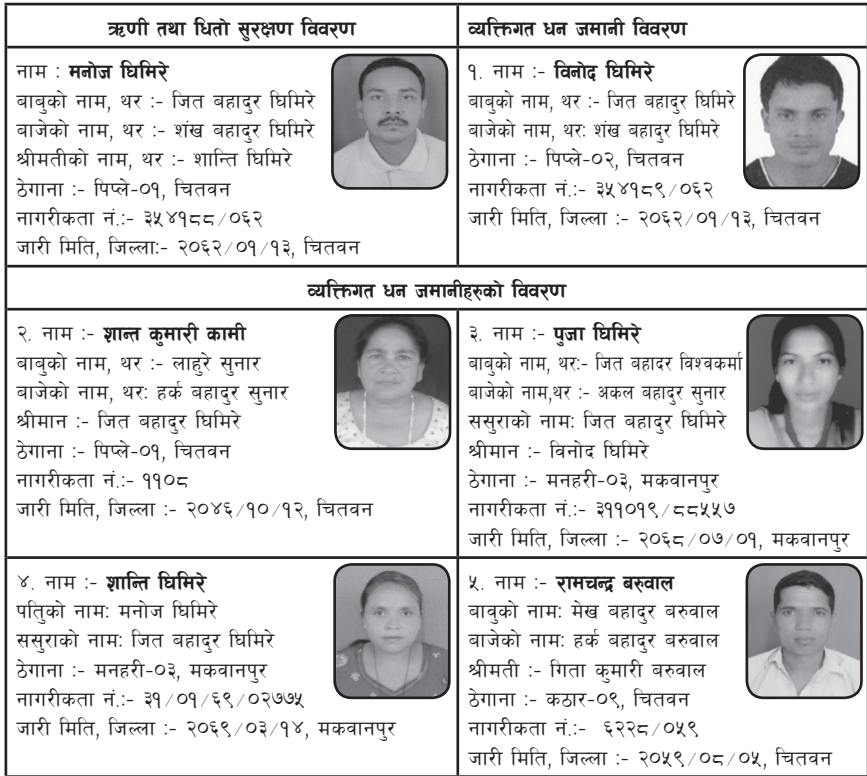 ऋणी तथा धितो सुरक्षण विवरण
नाम : मनोज घिमिरे
बाबुको नाम, थर :- जित बहादुर घिमिरे
बाजेको नाम, थर :- शंख बहादुर घिमिरे
श्रीमतीको नाम, थर :- शान्ति घिमिरे
ठेगाना :- पिप्ले-०१, चितवन
नागरीकता नं.:- ३५४१८८/०६२
जारी मिति, जिल्ला:- २०६२/०१/१३, चितवन
व्यक्तिगत धन जमानी विवरण
१. नाम :- विनोद घिमिरे
बाबुको नाम, थर :- जित बहादुर घिमिरे
बाजेको नाम, थर: शंख बहादुर घिमिरे
ठेगाना :- पिप्ले-०२, चितवन
नागरीकता नं.:- ३५४१८९/०६२
जारी मिति, जिल्ला :- २०६२/०१/१३, चितवन
व्यक्तिगत धन जमानीहरुको विवरण
२. नाम :- शान्त कुमारी कामी
बाबुको नाम, थर :- लाहुरे सुनार
बाजेको नाम, थर: हर्क बहादुर सुनार
श्रीमान :- जित बहादुर घिमिरे
ठेगाना :- पिप्ले-०१, चितवन
नागरीकता नं.:- ११०८
जारी मिति, जिल्ला :- २०४६/१०/१२, चितवन
३. नाम :- पुजा घिमिरे
बाबुको नाम, थर:- जित बहादर विश्वकर्मा
बाजेको नाम,थर :- अकल बहादुर सुनार
ससुराको नाम: जित बहादुर घिमिरे
श्रीमान :- विनोद घिमिरे
ठेगाना :- मनहरी-०३, मकवानपुर
नागरीकता नं.:- ३११०१९/८८५५७
जारी मिति, जिल्ला :- २०६८/०७/०१, मकवानपुर
४. नाम :- शान्ति घिमिरे
पतिुको नाम: मनोज घिमिरे
ससुराको नाम: जित बहादुर घिमिरे
ठेगाना :- मनहरी-०३, मकवानपुर
नागरीकता नं.:- ३१/०१/६९/०२७७५
जारी मिति, जिल्ला :- २०६९/०३/१४, मकवानपुर
५. नाम :- रामचन्द्र बरुवाल
बाबुको नाम: मेख बहादुर बरुवाल
बाजेको नाम: हर्क बहादुर बरुवाल
श्रीमती :- गिता कुमारी बरुवाल
ठेगाना :- कठार-०९, चितवन
नागरीकता नं.:- ६२२८/०५९
जारी मिति, जिल्ला :- २०५९/०८/०५, चितवन